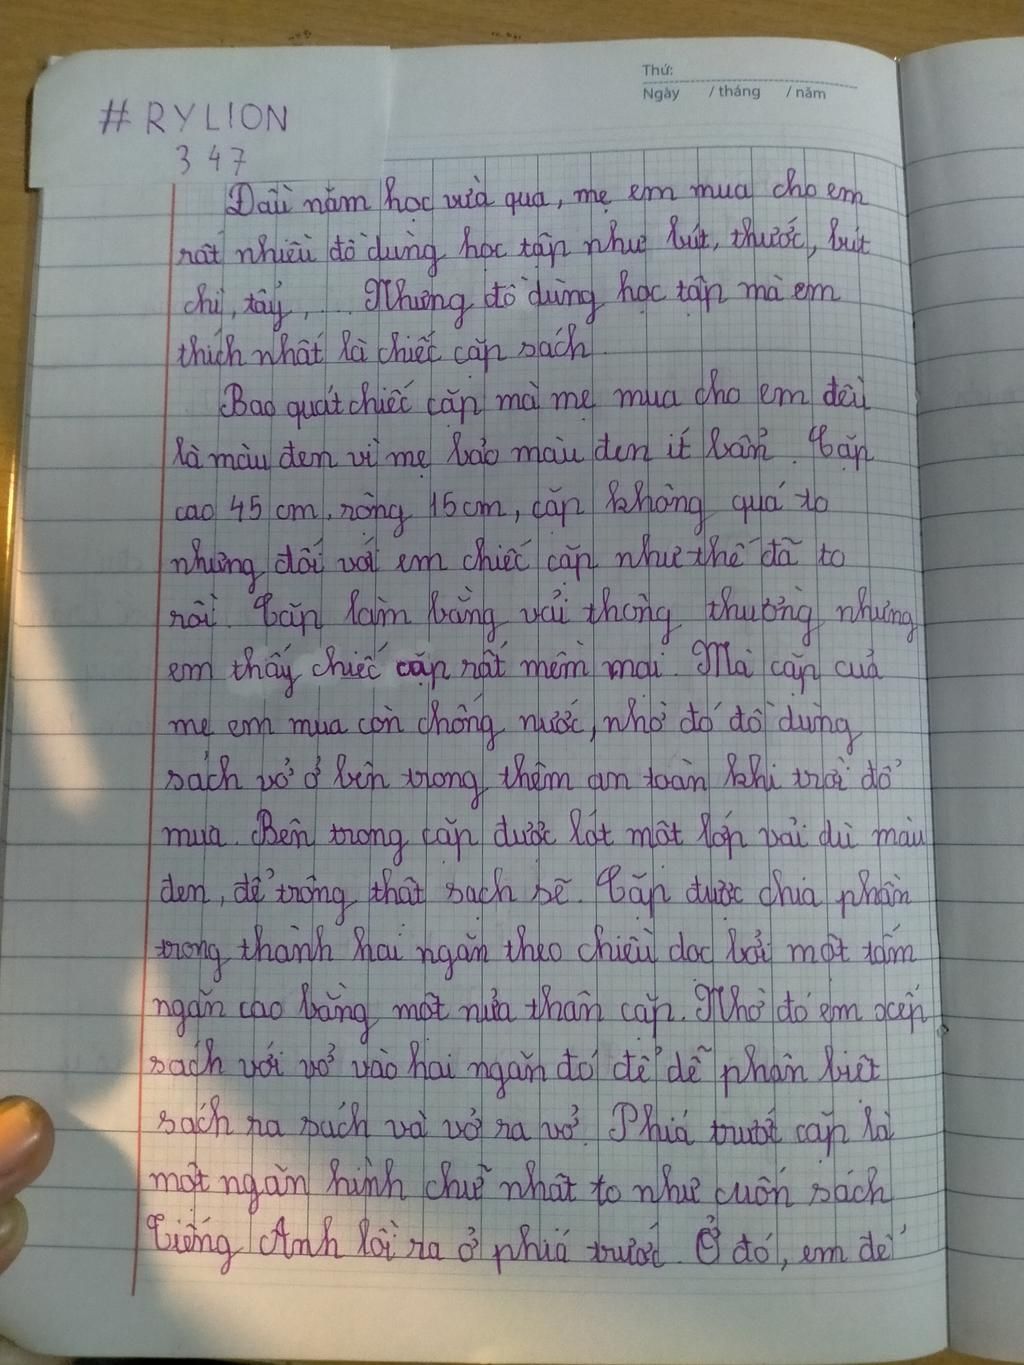 Thứ:
Ngày / tháng / năm
# RYLION
347
Đầu năm học vừa qua, mẹ em mua cho em
rất nhiều đồ dùng học tập như bút, thước, bút
chì, tẩy, .... Nhưng đồ dùng học tập mà em
thích nhất là chiếc cặp sách.
Bao quát chiếc cặp mà mẹ mua cho em đều
là màu đen vì mẹ bảo màu đen ít bẩn. Cặp
cao 45 cm, rộng 15cm, cặp không quá to
nhưng đối với em chiếc cặp như thế đã to
rồi. Cặp làm bằng vải thông thường nhưng
em thấy chiếc cặp rất mềm mại. Mà cặp của
mẹ em mua còn chống nước, nhờ đó đồ dùng
sách vở ở bên trong thêm an toàn khi trời đổ
mưa. Bên trong cặp được lót một lớp vải dù màu
đen, để trông thật sạch sẽ. Cặp được chia phần
trong thành hai ngăn theo chiều dọc bởi một tấm
ngăn cao bằng một nửa thân cặp. Nhờ đó em xếp
sách với vở vào hai ngăn đó để dễ phân biệt
sách ra sách và vở ra vở. Phía trước cặp là
một ngăn hình chữ nhật to như cuốn sách
Tiếng Anh lồi ra ở phía trước. Ở đó, em để